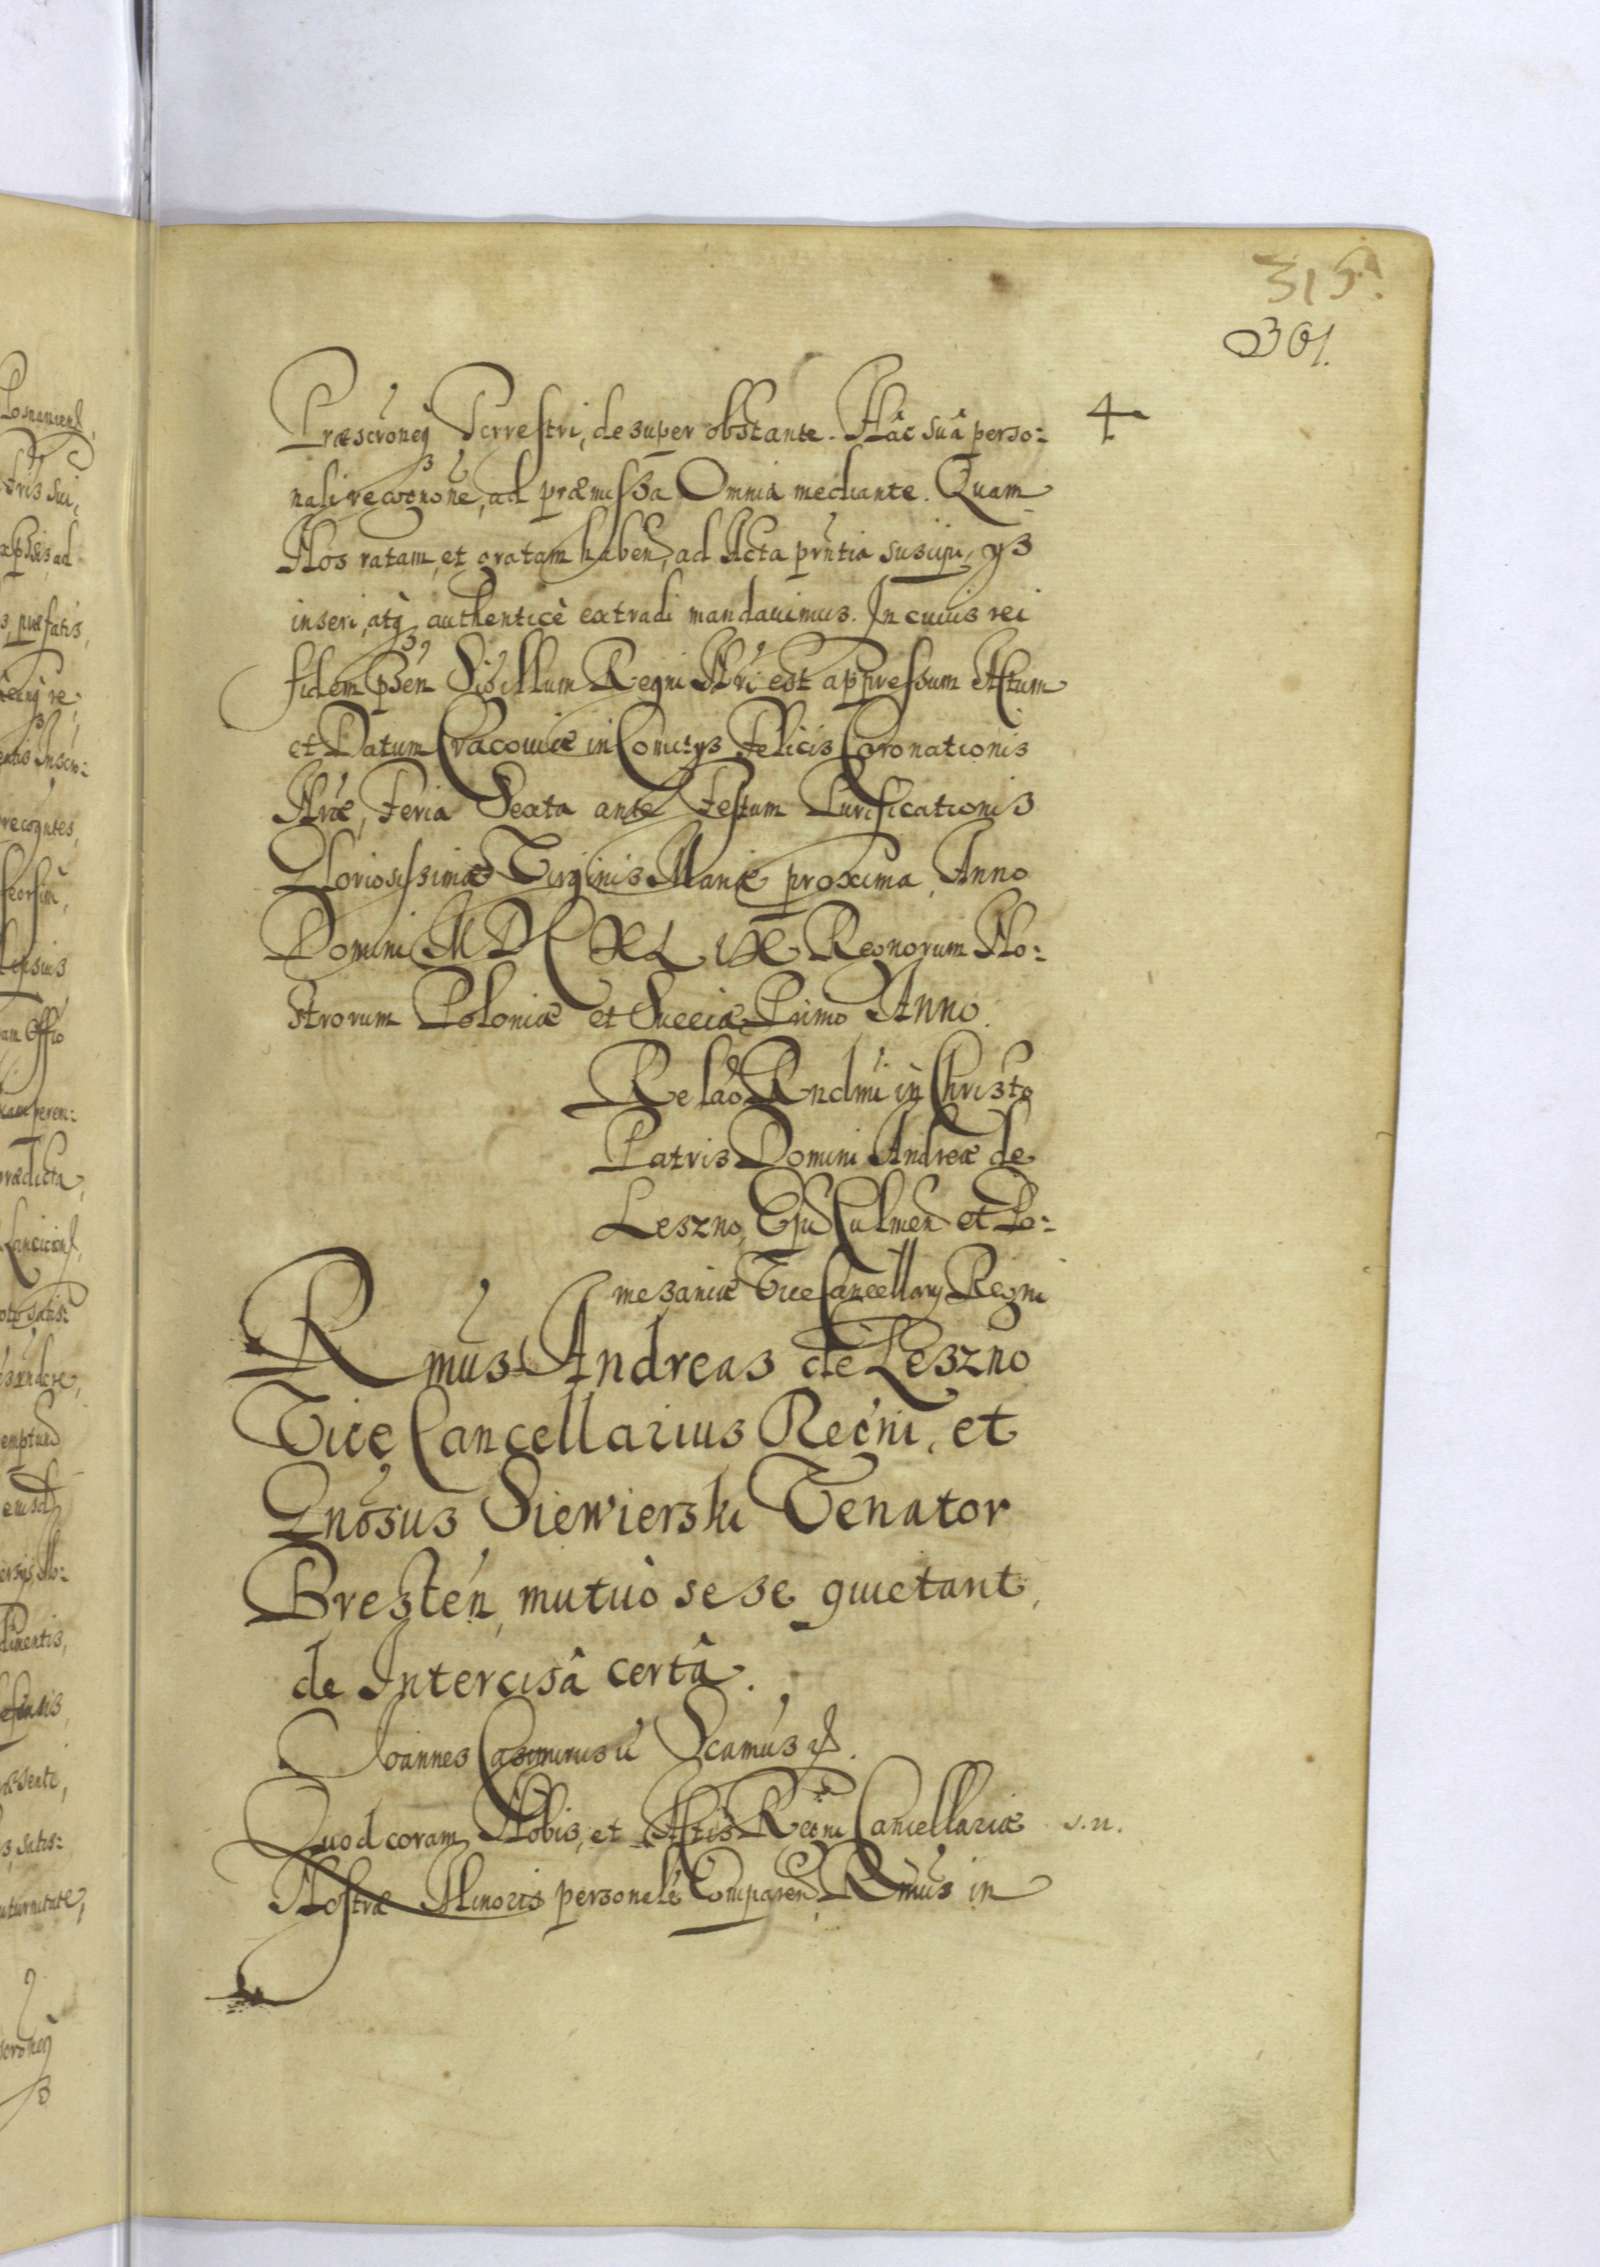 315.
301.
Præscroneq Terrestri, desuper obstante. Hâc suâ perso:
nali recogñone, ad præmissa Omnia mediante. Quam
Nos ratam, et gratam haben, ad Acta pr̃ntia suscipi, ys
inseri, atq authenticè extradi mandavimus. In cuius rei
fidem p̃sen Sigillum Regni Nr̃i est appressum Actum
et Datum Cracoviæ in Comitys Felicis Coronationis
Nr̃æ, Feria Sexta ante Festum Purificationis
Gloriosissimæ Virginis Mariæ proxima, Anno
Domini MDCXLIX Regnorum No:
strorum Poloniæ et Sueciæ Primo Anno.
Relão Rndmi in Christo
Patris Domini Andreæ de
Leszno, Epi Culmen et Po:
mesaniæ Vice Cancellarij Regni
Rmus Andreas de Leszno
Vice Cancellarius Regni, et
Gnosus Siewierski Venator
Brestén, mutuò sese quietant,
de Intercisâ certâ.
Joannes Casimirus ũ Scamus
Quod coram Nobis, et Actis Regni Cancellariæ s.n.
Nostræ Minoris personalẽ Comparen Rmus in